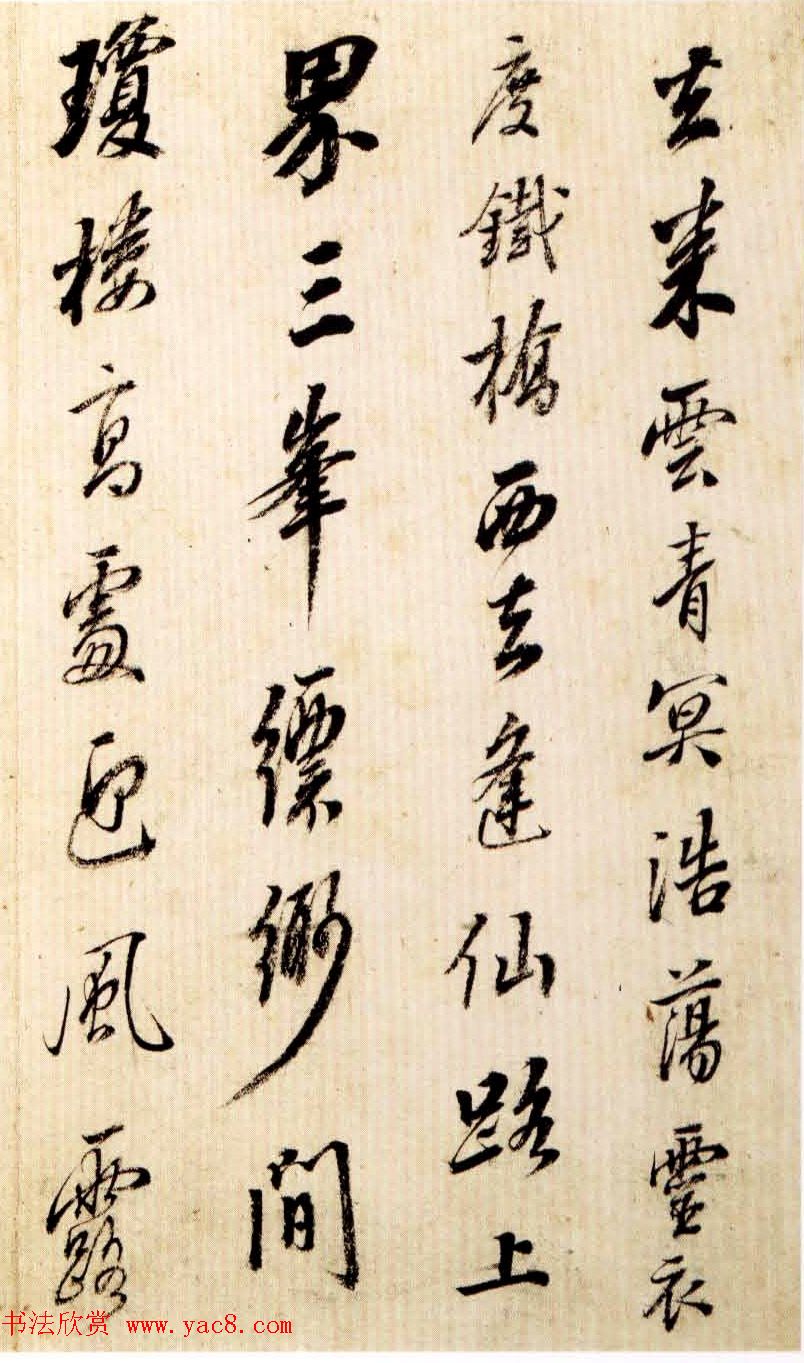 去來雲青冥浩蕩靈衣
度鐵橋西去逢仙路上
界三峯縹緲間
瓊樓高處迎風露
书法欣赏 www.yac8.com